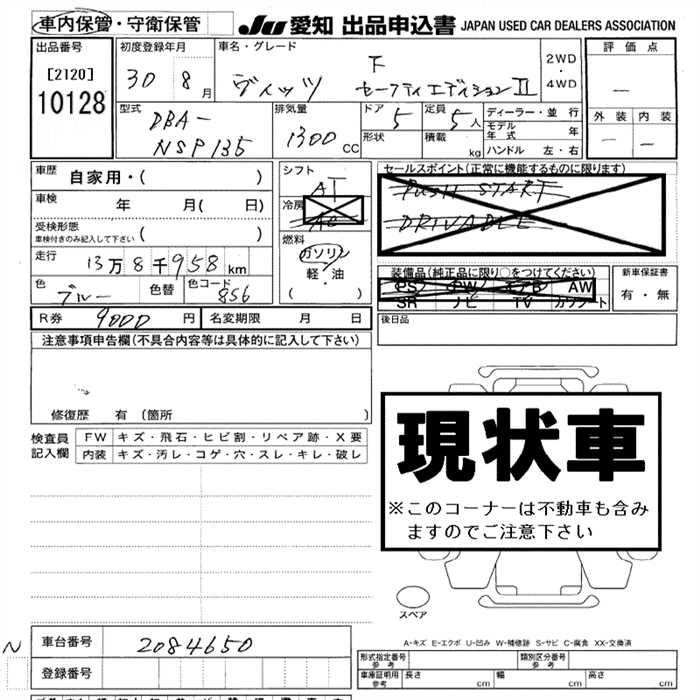 車内保管・守衛保管
JU 愛知 出品申込書 JAPAN USED CAR DEALERS ASSOCIATION
出品番号
[2120]
10128
初度登録年月
30 8月
車名・グレード
F
ヴィッツ セーフティエディションⅡ
2WD
・
4WD
評価点
—
外装 内装
— —
型式
DBA-
NSP135
排気量
1300 CC
ドア 5
形状
定員 5人
積載 kg
ディーラー・並行
モデル年式 年
ハンドル 左・右
車歴 自家用・( )
車検 年 月( 日)
受検形態
車検付きのみ記入して下さい ( )
走行 13万8千958km
色 ブルー 色替 色コード 856
シフト
AT
冷房
AC
燃料
ガソリン
軽・油
( )
セールスポイント(正常に機能するものに限ります)
PUSH START
DRIVABLE
装備品(純正品に限り○をつけてください)
PS PW エアB AW
SR ナビ TV カワシート
新車保証書
有・無
R券 9000円 名変期限 月 日
後日品
注意事項申告欄(不具合内容等は具体的に記入して下さい)
修復歴 有(箇所 )
検査員記入欄
FW キズ・飛石・ヒビ割・リペア跡・X要
内装 キズ・汚レ・コゲ・穴・スレ・キレ・破レ
現状車
※このコーナーは不動車も含み
ますのでご注意下さい
スペア
A-キズ E-エクボ U-凹み W-補修跡 S-サビ C-腐食 XX-交換済
N
車台番号 2084650
登録番号
形式指定番号 参考
類別区分番号 参考
車庫証明用 参考 長さ cm 幅 cm 高さ cm